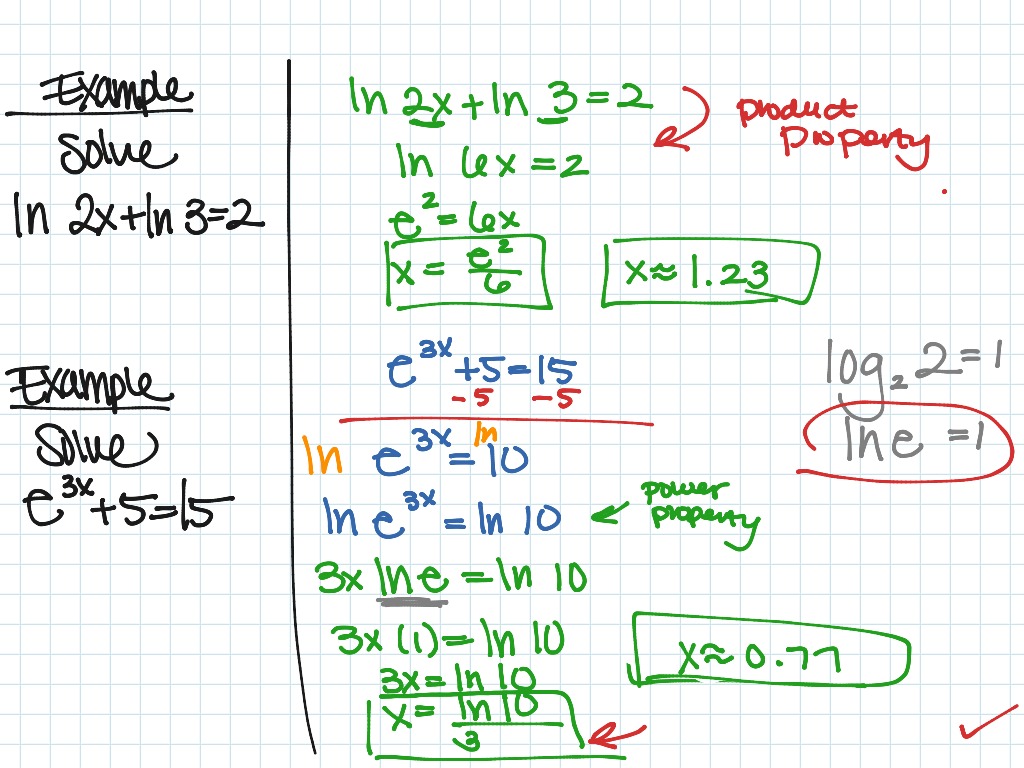 Example
Solve
ln 2x+ln 3=2
ln 2x+ln 3=2
product
property
ln 6x=2
e²=6x
x = e²/6
x≈1.23
Example
Solve
e^{3x}+5=15
e^{3x}+5=15
-5 -5
ln e^{3x} = ln 10
ln e^{3x} = ln 10
power
property
3x ln e = ln 10
3x (1) = ln 10
3x = ln 10
x = ln 10/3
x≈0.77
log₂ 2=1
ln e =1